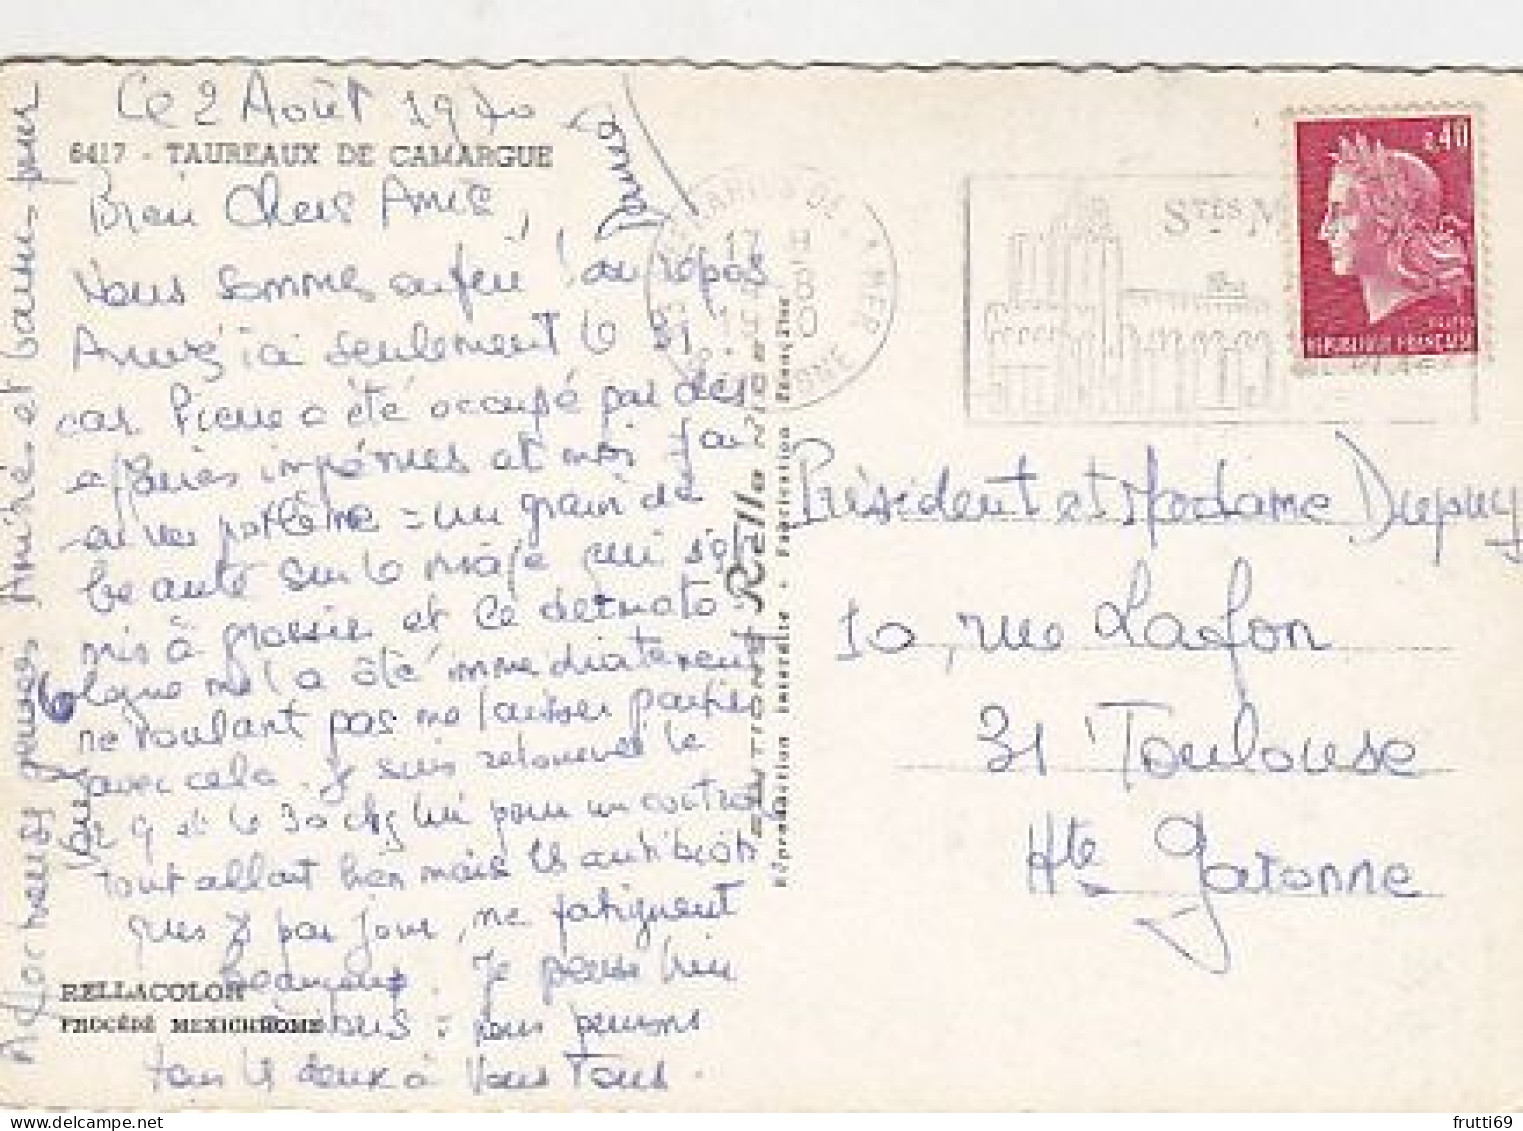 Ce 2 Août 1970
6417 - TAUREAUX DE CAMARGUE
Bien Chers Amis,
Nous sommes enfin au repos
seulement le 31
car Pierre a été occupé par des
affaires et moi j'ai
eu un problème = un grain de
beauté sur le qui s'est
mis à grossir et le dermato
logue me l'a ôté immédiatement
ne voulant pas me laisser partir
avec cela. Je suis retournée le
9 et le 30 chez lui pour un contrôle
tout allait bien mais les antibioti
ques 3 par jour, ne fatiguent
beaucoup. Je pense bien
à = nous pensons
tous les deux à Vous Tous.
RELLACOLOR
PROCÉDÉ MEXICHROME
Amitiés et baisers pour
EDITIONS Rella NICE
Reproduction Interdite - Fabrication Française
DE LA MER
17 H
STES M
0,40
REPUBLIQUE FRANÇAISE
Président et Madame Dupuy
10, rue Lafon
31 Toulouse
Hte Garonne
frutti69